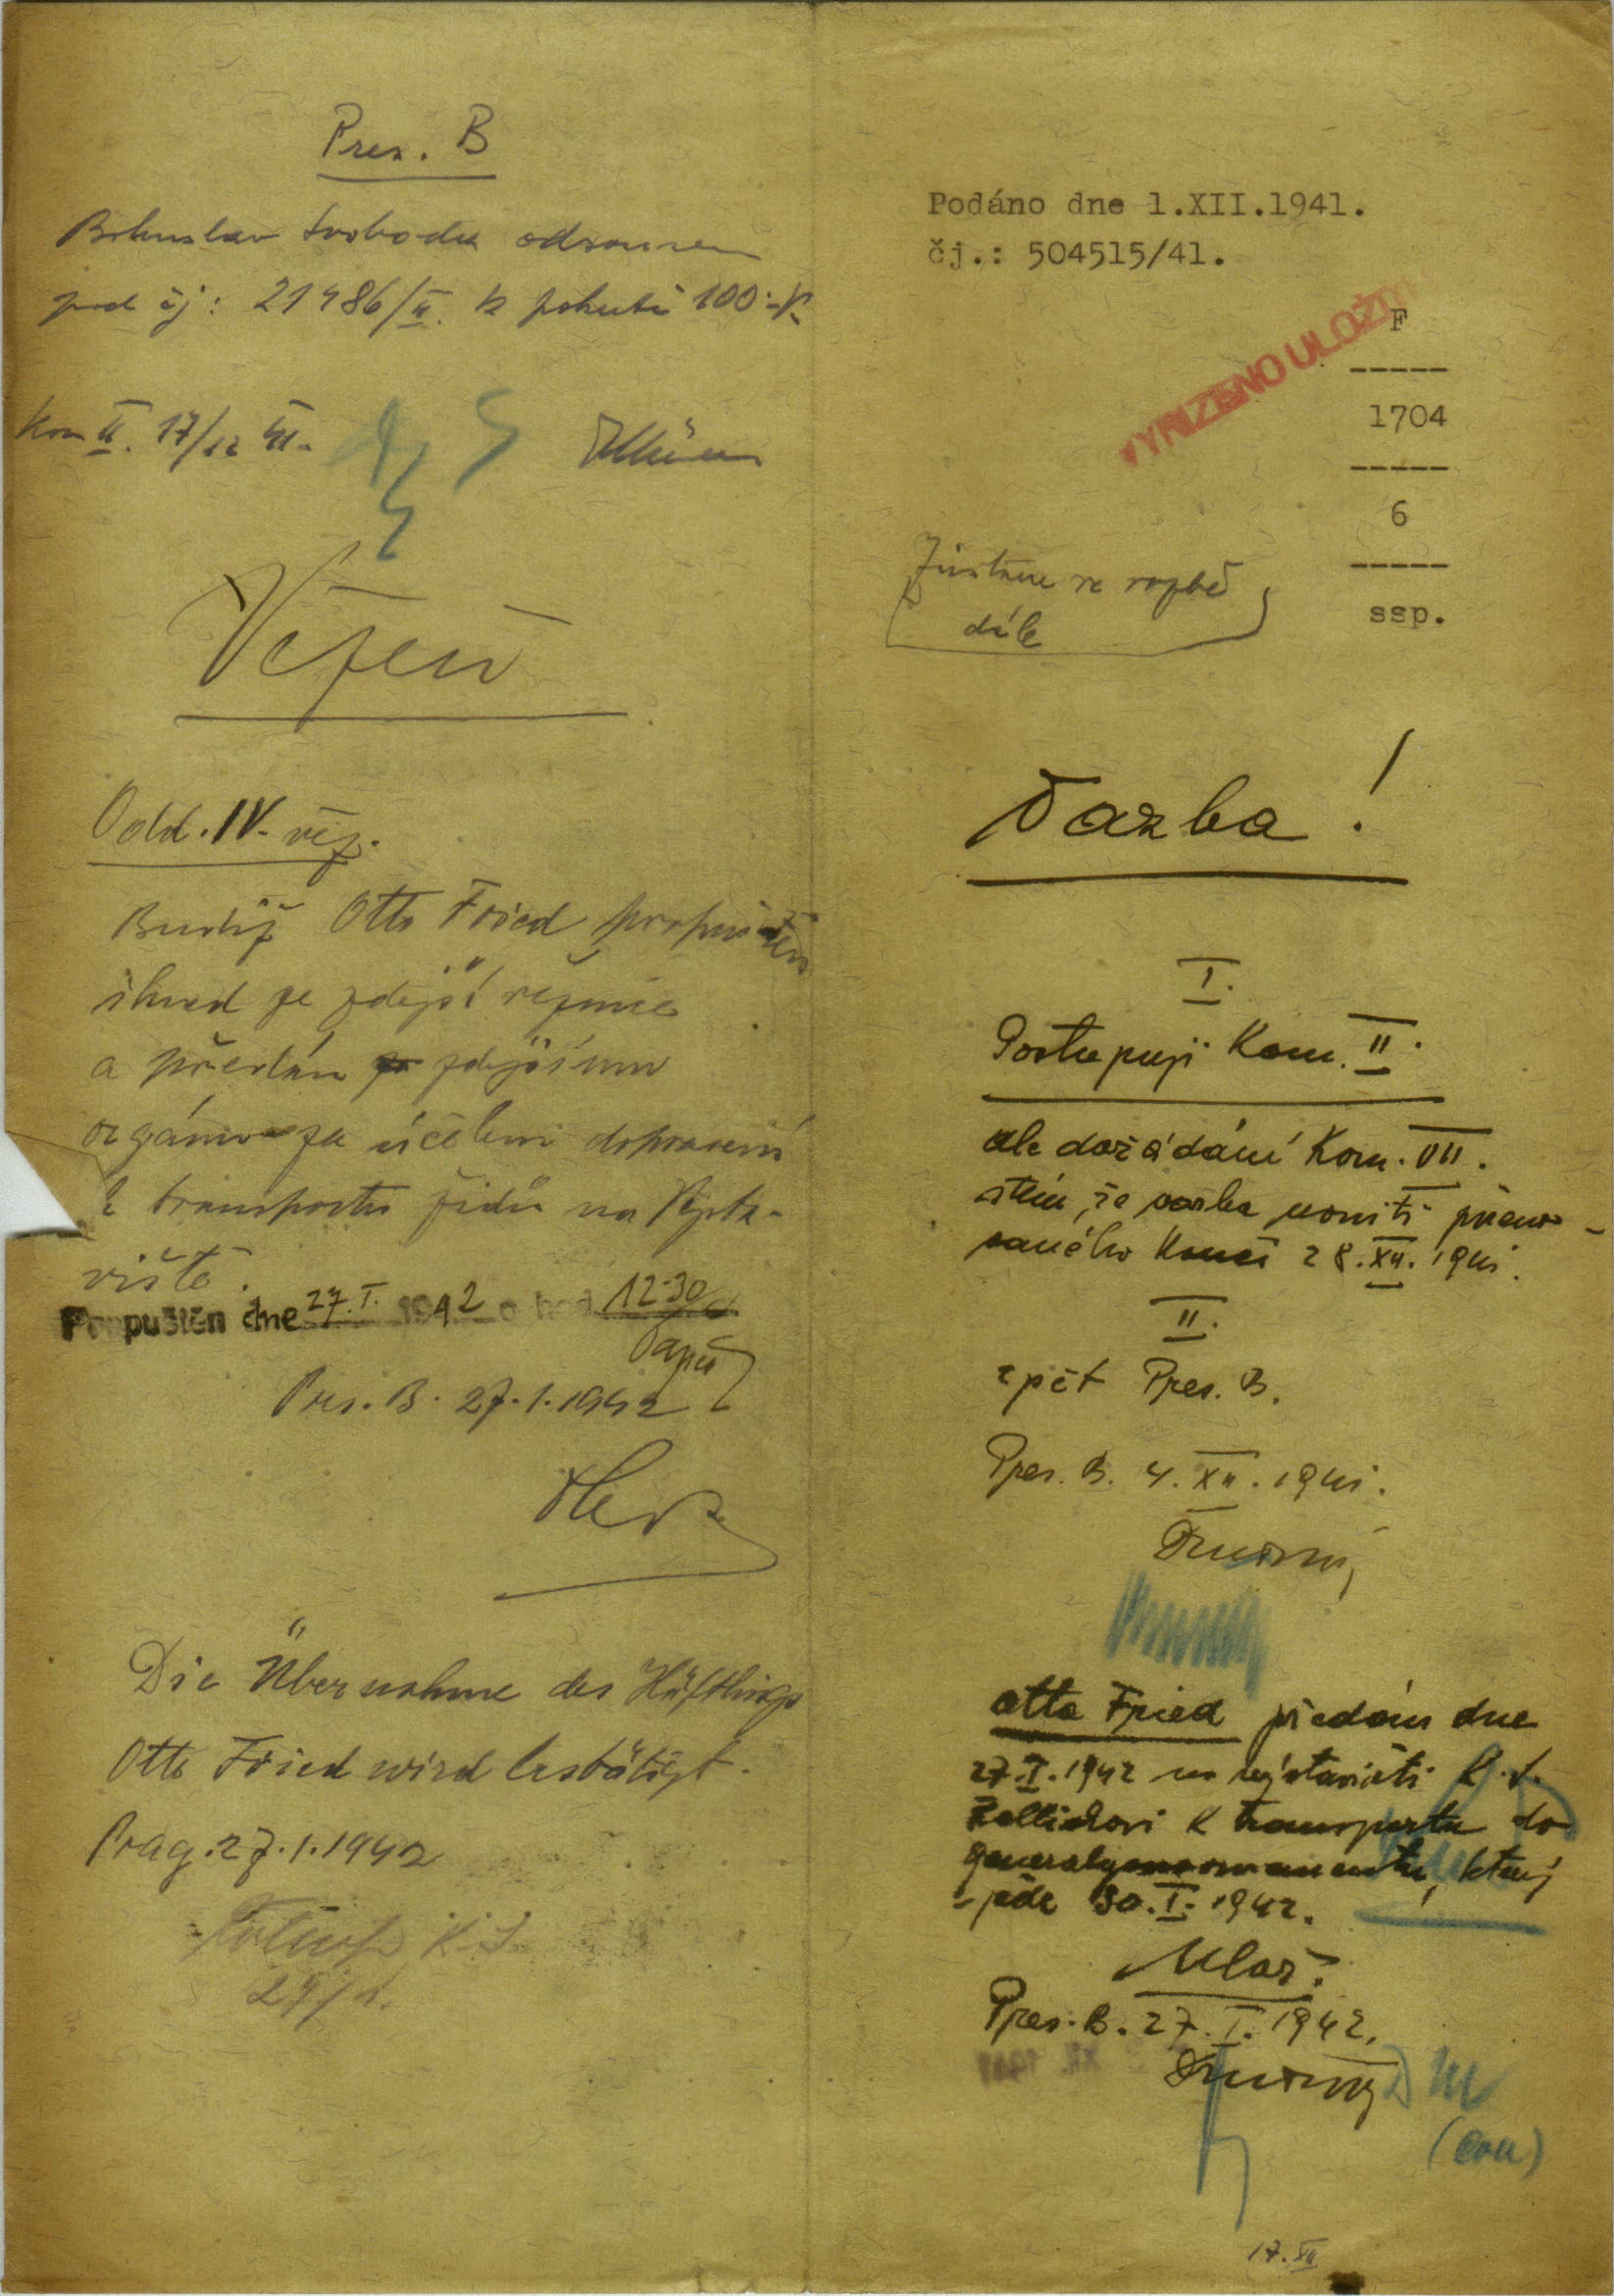 Pres. B
Bohuslav Svoboda odsouzen
pod čj: 21486/II. k pokutě 100.-K
Kom II. 17/12 41.
Vězení
Odd. IV. věz.
Budiž Otto Fried propuštěn
ihned ze zdejší věznice
a předán zdejšímu
orgánu za účelem dopravení
k transportu židů na Výsta-
viště.
Propuštěn dne 27.I. 1942 o hod 12·30
Pres. B. 27.1.1942
Die Übernahme des Häftlings
Otto Fried wird bestätigt.
Prag. 27.1.1942
K.S.
27/1.
Podáno dne 1.XII.1941.
čj.: 504515/41.
VYŘÍZENO ULOŽIT
F
-----
1704
-----
6
-----
ssp.
Zůstane ve vazbě
dále
Vazba!
I.
Postupuji Kom. II.
dle dožádání Kom. VII.
s tím, že vazba
jmenovaného končí 28.XII.1941.
II.
zpět Pres. B.
Pres. B. 4.XII.1941.
Otto Fried předán dne
27.I.1942 na výstavišti K.S.
k transportu do
generalgouvernementu, který
jede 30.I.1942.
Pres. B. 27.I.1942.
XII. 1941
17.XII